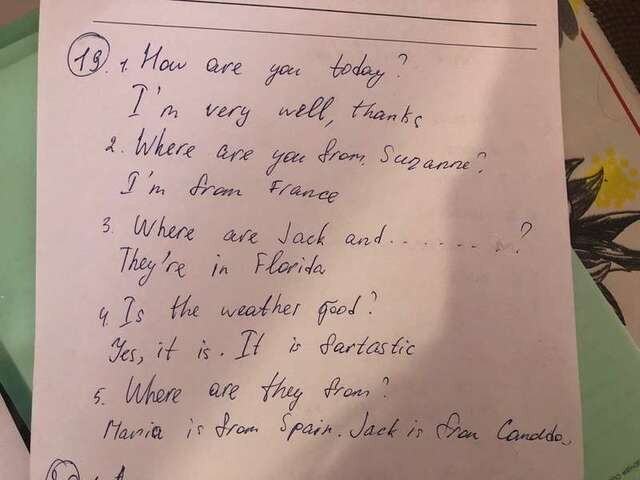 19. 1. How are you today?
I'm very well, thanks
2. Where are you from, Suzanne?
I'm from France
3. Where are Jack and .......?
They're in Florida
4. Is the weather good?
Yes, it is. It is fartastic
5. Where are they from?
Maria is from Spain. Jack is from